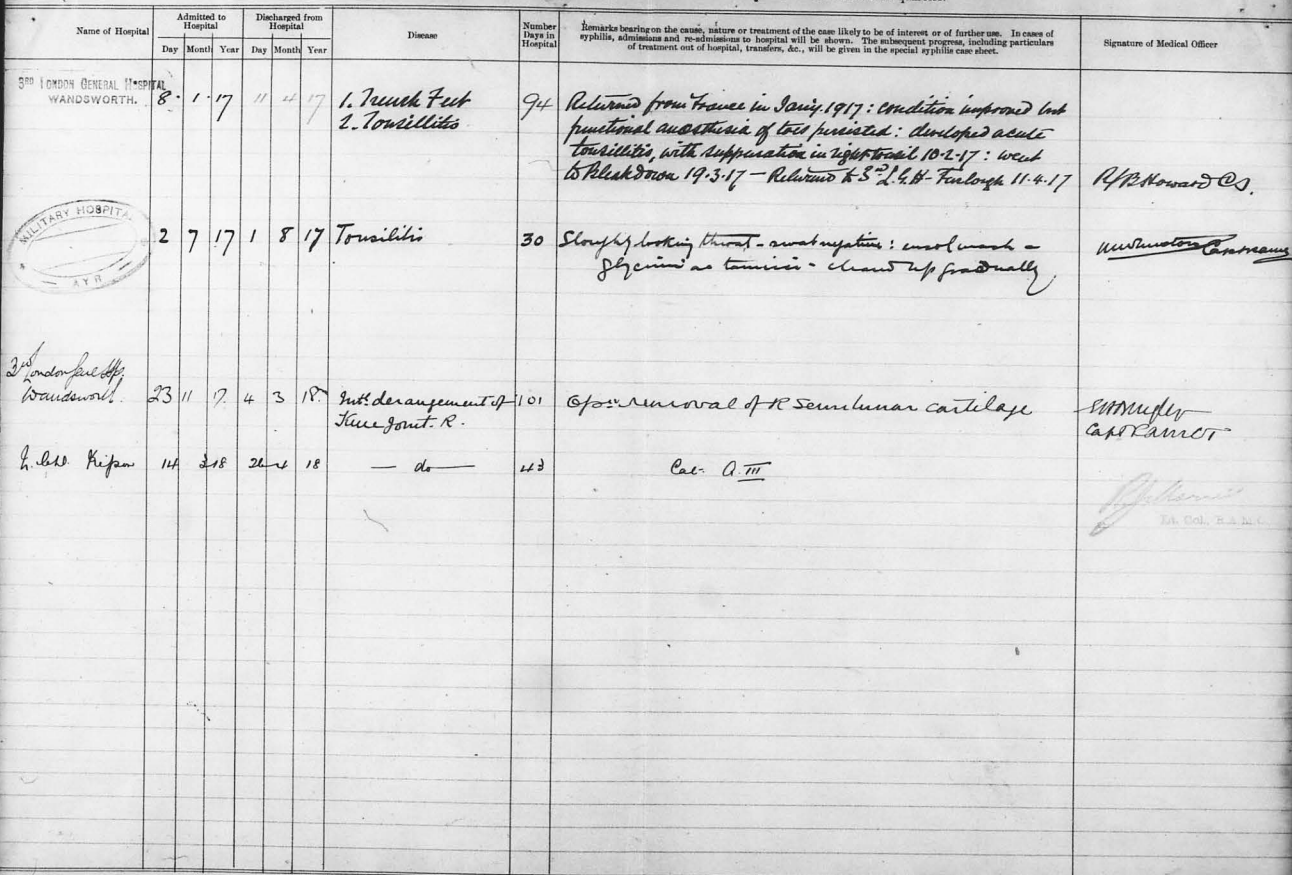 Name of Hospital
Admitted to Hospital
Day Month Year
Discharged from Hospital
Day Month Year
Disease
Number Days in Hospital
Remarks bearing on the cause, nature or treatment of the case likely to be of interest or of further use. In cases of
syphilis, admissions and re-admissions to hospital will be shown. The subsequent progress, including particulars
of treatment out of hospital, transfers, &c., will be given in the special syphilis case sheet.
Signature of Medical Officer
3RD LONDON GENERAL HOSPITAL
WANDSWORTH.
8 1 17 11 4 17
1. Trench Feet
2. Tonsillitis
94
Returned from France in Jany. 1917: condition improved but
functional anaesthesia of toes persisted: developed acute
tonsillitis, with suppuration in right tonsil 10-2-17: went
to 19.3.17 — Returned to 3rd L.G.H - Furlough 11.4.17
Howard
MILITARY HOSPITAL
AYR
2 7 17 1 8 17
Tonsilitis
30
Sloughy looking throat - swab negative: wash -
glycerini ac - cleared up gradually
3rd London Genl Hp.
Wandsworth.
23 11 17 4 3 18
Intl. derangement of
Knee Joint. R.
101
Opn removal of R Semilunar cartilage
Capt RAMCT
14 3 18 26 4 18
— do —
43
Cat. A III
Lt. Col. R.A.M.C.